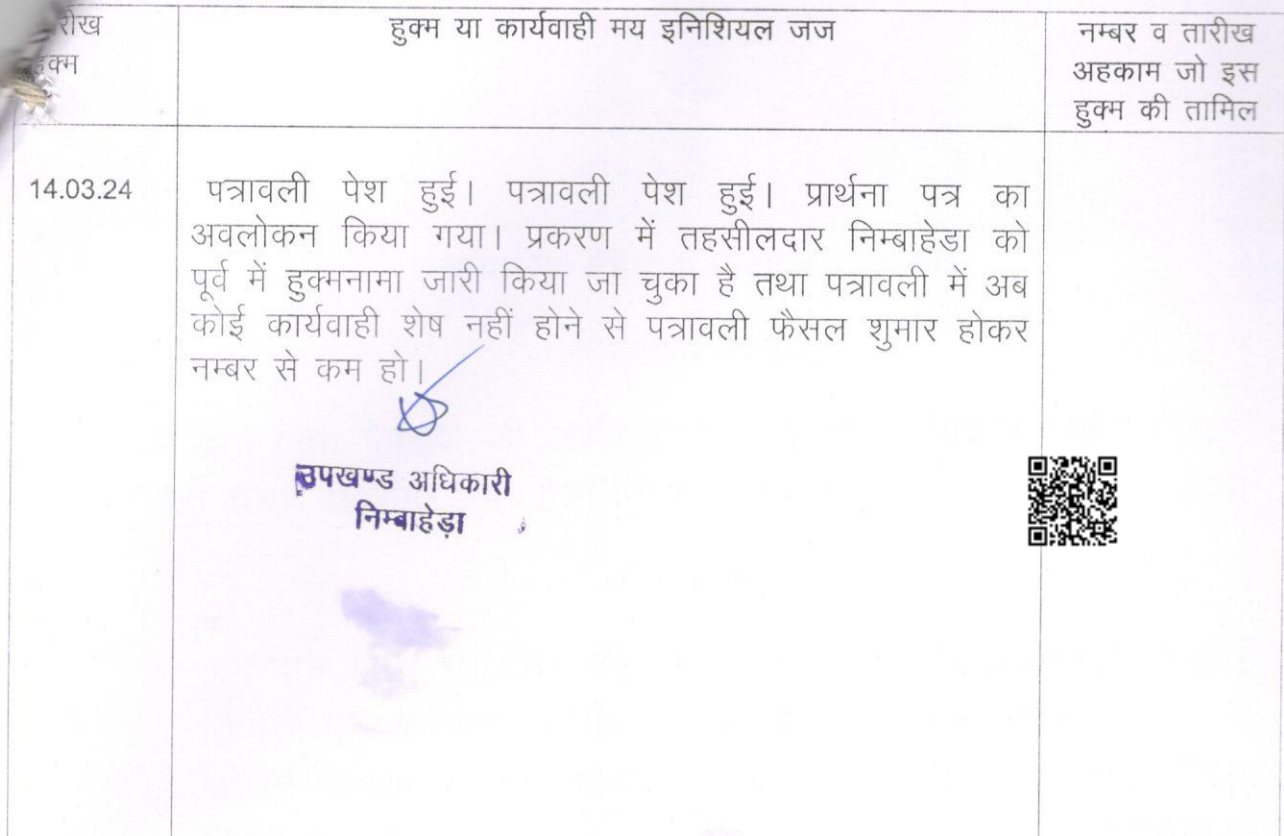 रीख
हुक्म या कार्यवाही मय इनिशियल जज
नम्बर व तारीख
हुक्म
अहकाम जो इस
हुक्म की तामिल
14.03.24
पत्रावली पेश हुई। पत्रावली पेश हुई। प्रार्थना पत्र का
अवलोकन किया गया। प्रकरण में तहसीलदार निम्बाहेडा को
पूर्व में हुक्मनामा जारी किया जा चुका है तथा पत्रावली में अब
कोई कार्यवाही शेष नहीं होने से पत्रावली फैसल शुमार होकर
नम्बर से कम हो।
उपखण्ड अधिकारी
निम्बाहेड़ा